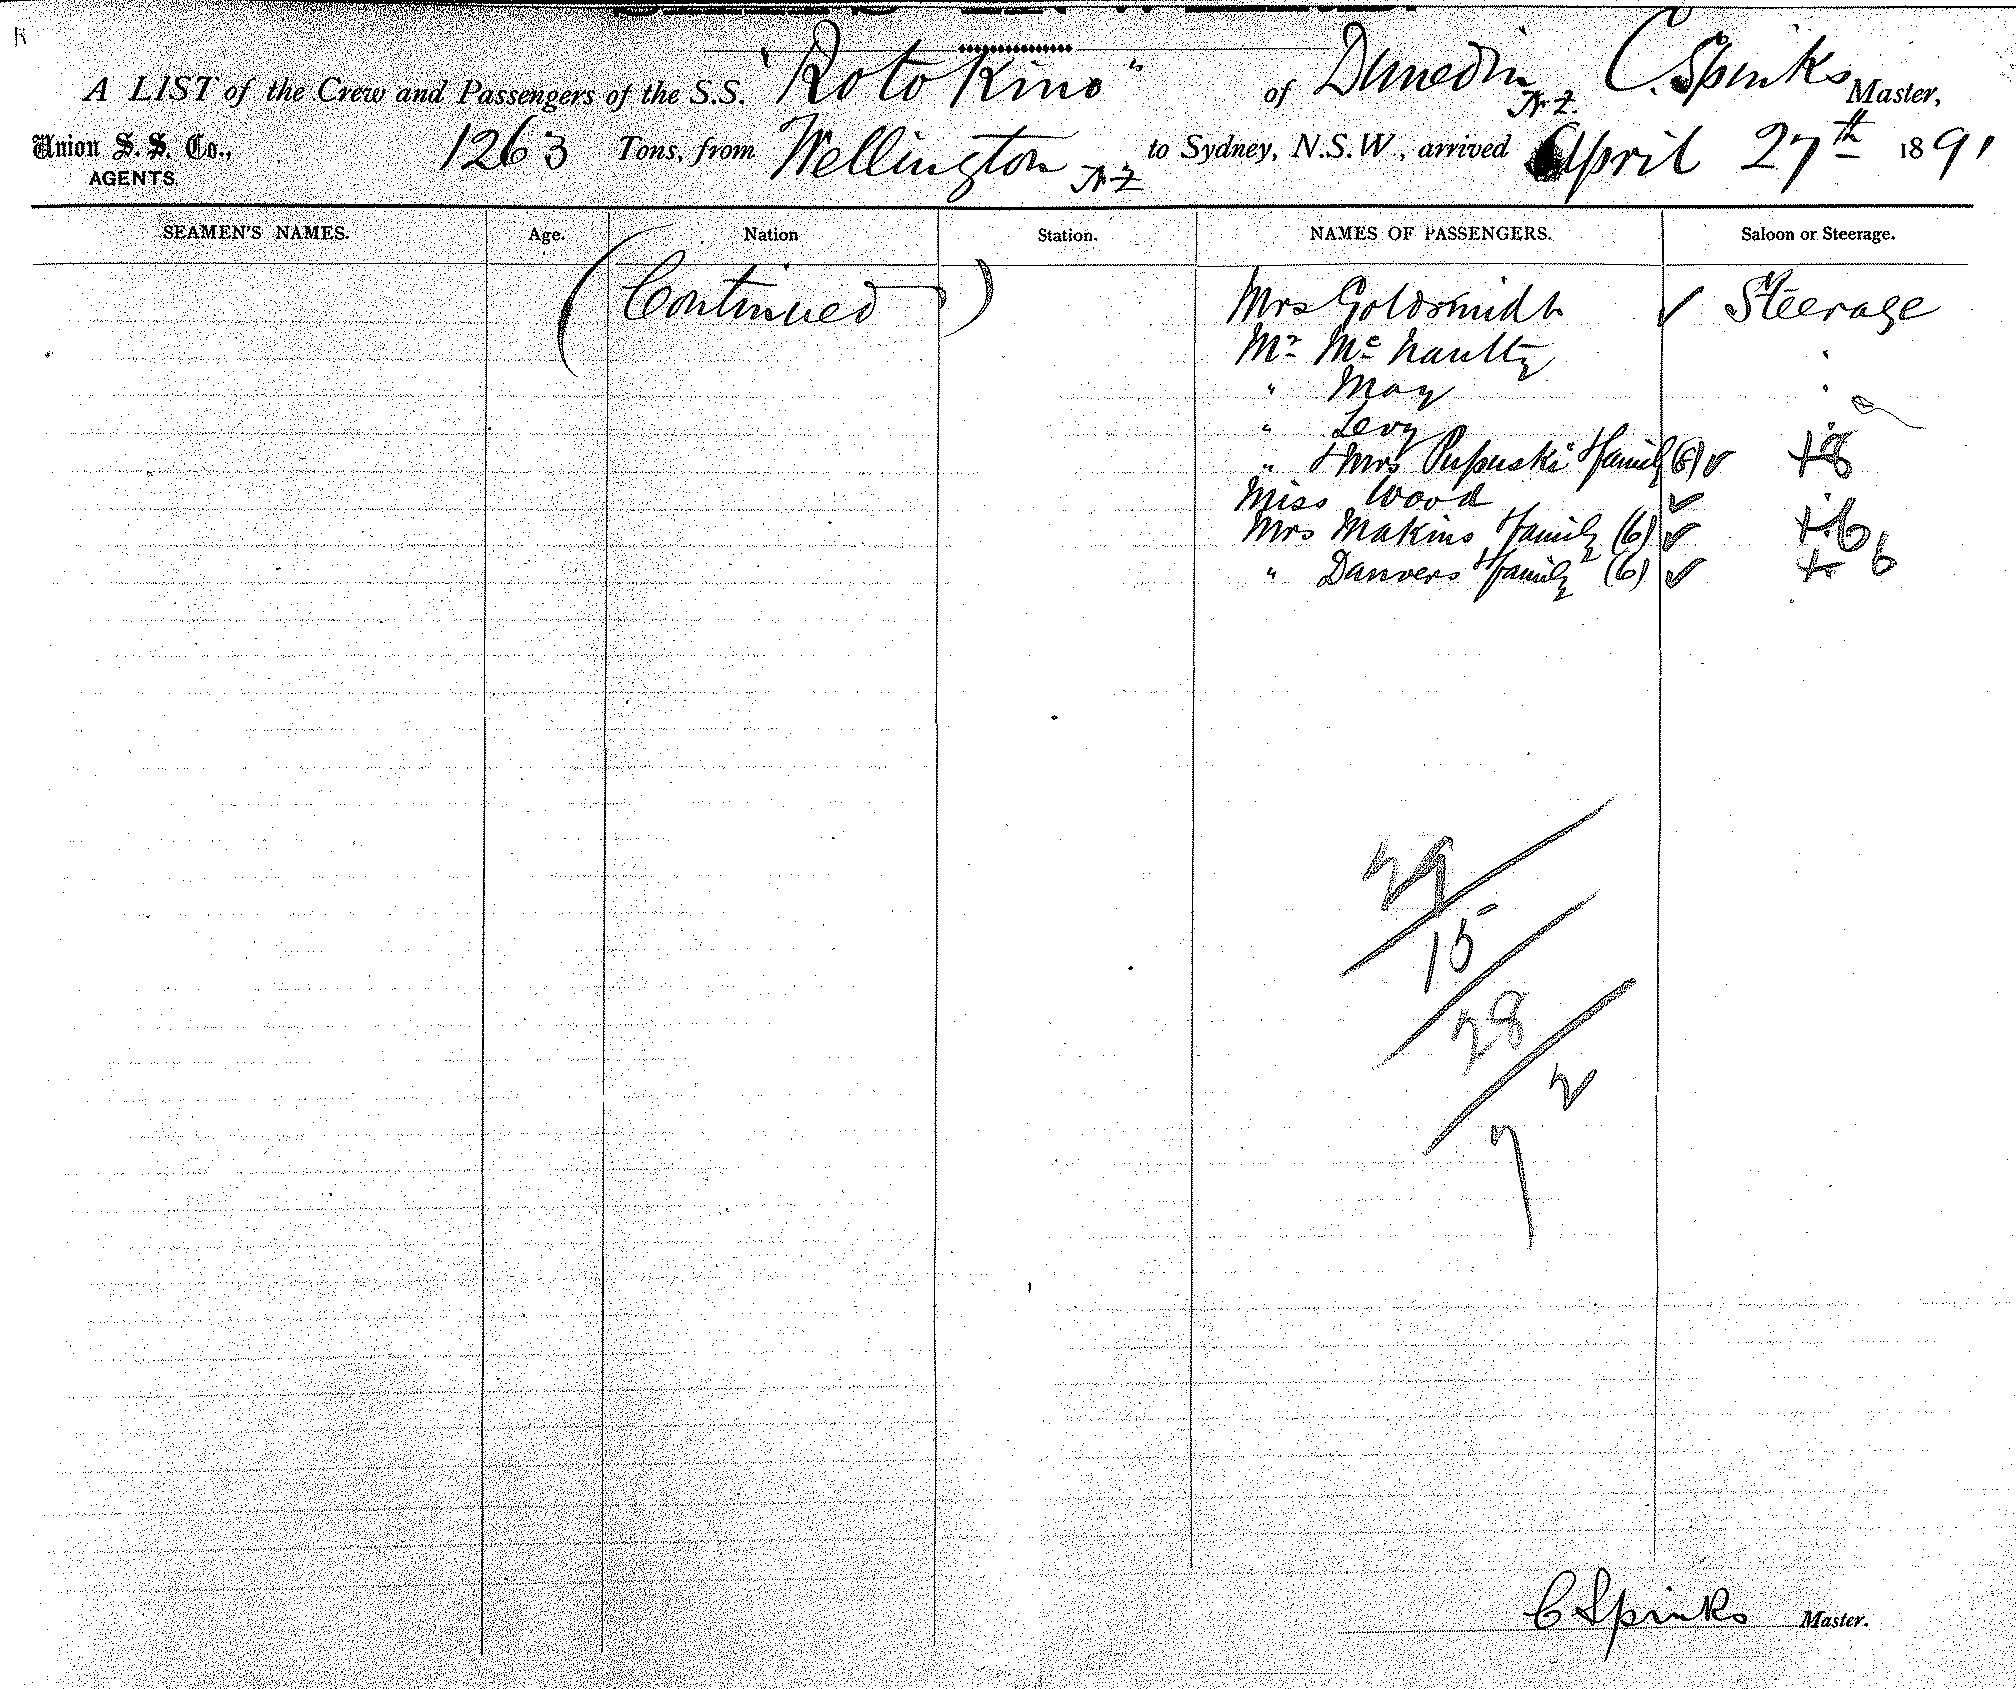 A LIST of the Crew and Passengers of the S.S. "Rotokino" of Dunedin N.Z. C. Spinks Master,
Union S. S. Co., AGENTS. 1263 Tons, from Wellington N.Z. to Sydney, N.S.W., arrived April 27th 1891
SEAMEN'S NAMES. Age. Nation Station. NAMES OF PASSENGERS. Saloon or Steerage.
(Continued) Mrs Goldsmidt ✓ Steerage
Mr Mc
" May "
" Levy
" & Mrs Pupuski & family (6) ✓ + 8
Miss Wood ✓ "
Mrs Makins & family (6) ✓ + 6
" Danvers & family (6) ✓ + 6
29
15
28
2
7
C Spinks Master.